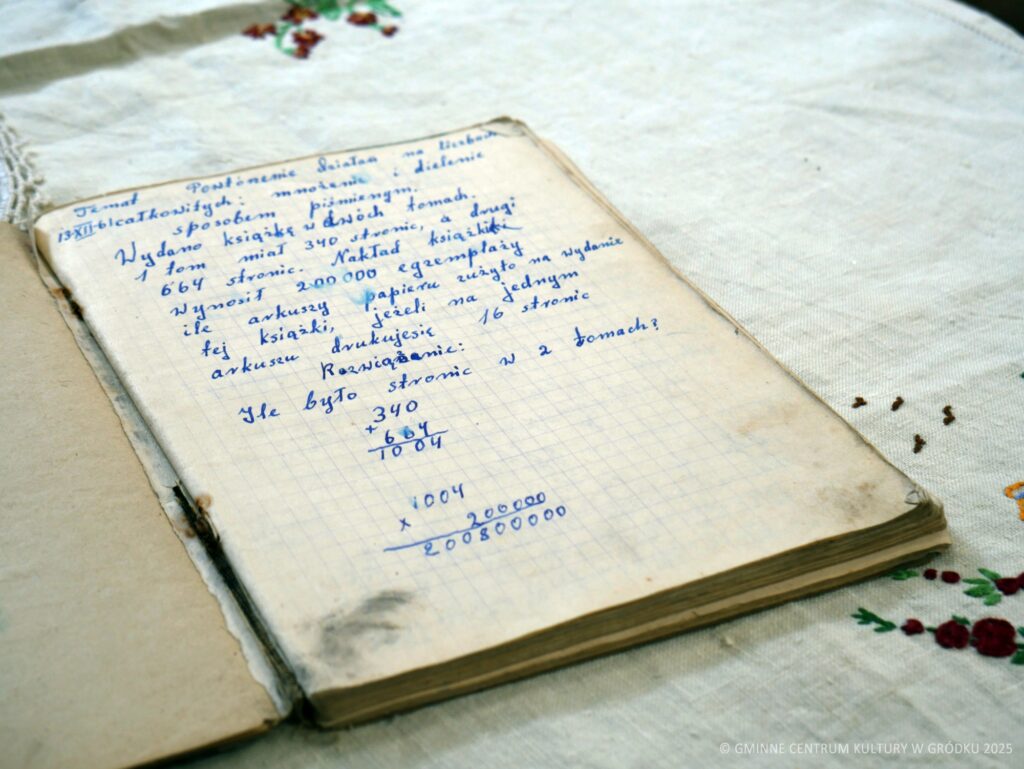 Temat Powtórzenie działań na liczbach
13 XII 61 całkowitych: mnożenie i dzielenie
sposobem piśmiennym.
Wydano książkę w dwóch tomach.
1 tom miał 340 stronic, a drugi
664 stronic. Nakład książki
wynosił 200000 egzemplaży
ile arkuszy papieru zużyto na wydanie
tej książki, jeżeli na jednym
arkuszu drukujesię 16 stronic
Rozwiązanie:
Ile było stronic w 2 tomach?
340
+ 664
1004
1004
x 200000
200800000
© GMINNE CENTRUM KULTURY W GRÓDKU 2025